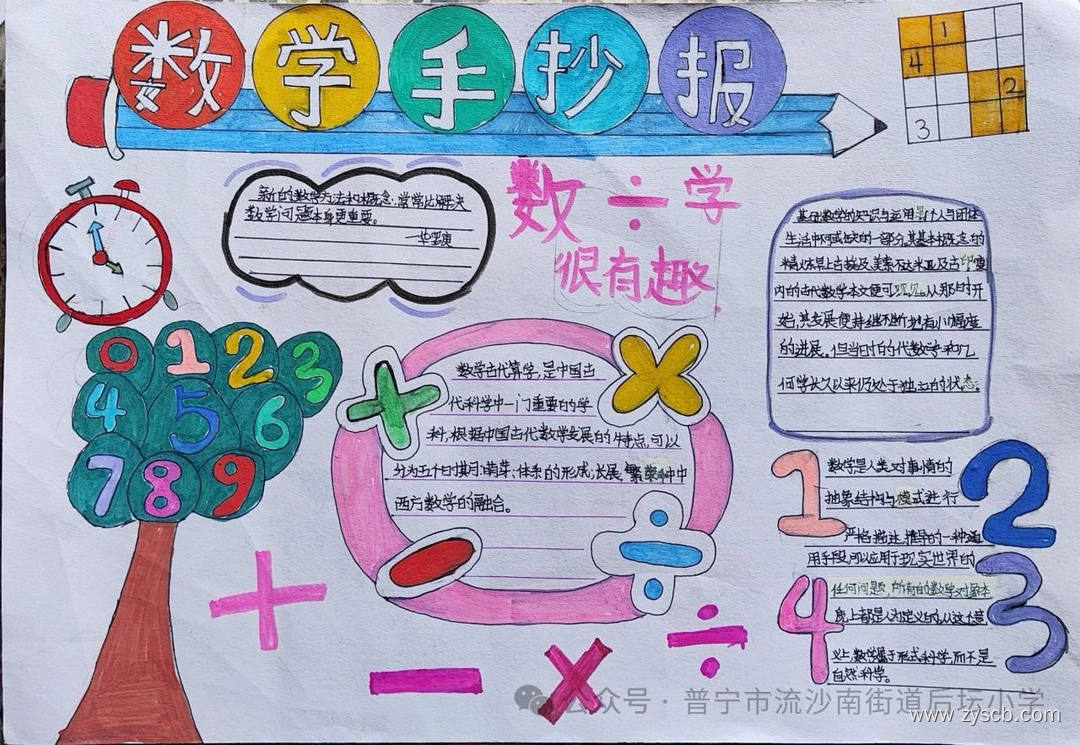 数学手抄报
1
4
2
3
新的数学方法和概念,常常比解决
数学问题本身更重要。
—华罗庚
数÷学
很有趣
基础数学的知识与运用是个人与团体
生活中不可或缺的一部分。其基本概念的
精炼早在古埃及、美索不达米亚及古印度
内的古代数学本文便可观见。从那时开
始,其发展便持续不断地有小幅度
的进展。但当时的代数学和几
何学长久以来仍处于独立的状态。
0 1 2 3
4 5 6
7 8 9
+
×
数学古代算学,是中国古
代科学中一门重要的学
科,根据中国古代数学发展的特点,可以
分为五个时期:萌芽;体系的形成;长展,繁荣和中
西方数学的融合。
−
÷
1
2
数学是人类对事情的
抽象结构与模式进行
严格描述、推导的一种通
用手段,可以应用于现实世界的
3
4
任何问题,所有的数学对象本
质上都是人为定义的,从这个意
义上,数学属于形式科学,而不是
自然科学。
+
−
×
÷
公众号·普宁市流沙南街道后坛小学
www.zyscb.com